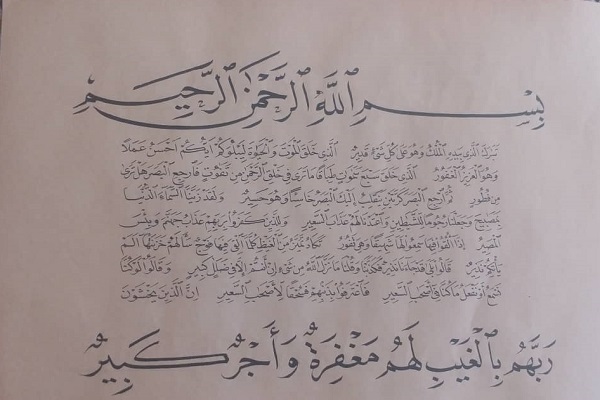 بِسْمِ ٱللَّهِ ٱلرَّحْمَٰنِ ٱلرَّحِيمِ
تَبَٰرَكَ ٱلَّذِي بِيَدِهِ ٱلْمُلْكُ وَهُوَ عَلَىٰ كُلِّ شَيْءٍ قَدِيرٌ ٱلَّذِي خَلَقَ ٱلْمَوْتَ وَٱلْحَيَوٰةَ لِيَبْلُوَكُمْ أَيُّكُمْ أَحْسَنُ عَمَلًا
وَهُوَ ٱلْعَزِيزُ ٱلْغَفُورُ ٱلَّذِي خَلَقَ سَبْعَ سَمَٰوَاتٍ طِبَاقًا مَا تَرَىٰ فِي خَلْقِ ٱلرَّحْمَٰنِ مِنْ تَفَٰوُتٍ فَٱرْجِعِ ٱلْبَصَرَ هَلْ تَرَىٰ
مِنْ فُطُورٍ ثُمَّ ٱرْجِعِ ٱلْبَصَرَ كَرَّتَيْنِ يَنْقَلِبْ إِلَيْكَ ٱلْبَصَرُ خَاسِئًا وَهُوَ حَسِيرٌ وَلَقَدْ زَيَّنَّا ٱلسَّمَاءَ ٱلدُّنْيَا
بِمَصَٰبِيحَ وَجَعَلْنَٰهَا رُجُومًا لِلشَّيَٰطِينِ وَأَعْتَدْنَا لَهُمْ عَذَابَ ٱلسَّعِيرِ وَلِلَّذِينَ كَفَرُوا بِرَبِّهِمْ عَذَابُ جَهَنَّمَ وَبِئْسَ
ٱلْمَصِيرُ إِذَا أُلْقُوا فِيهَا سَمِعُوا لَهَا شَهِيقًا وَهِيَ تَفُورُ تَكَادُ تَمَيَّزُ مِنَ ٱلْغَيْظِ كُلَّمَا أُلْقِيَ فِيهَا فَوْجٌ سَأَلَهُمْ خَزَنَتُهَا أَلَمْ
يَأْتِكُمْ نَذِيرٌ قَالُوا بَلَىٰ قَدْ جَاءَنَا نَذِيرٌ فَكَذَّبْنَا وَقُلْنَا مَا نَزَّلَ ٱللَّهُ مِنْ شَيْءٍ إِنْ أَنْتُمْ إِلَّا فِي ضَلَٰلٍ كَبِيرٍ وَقَالُوا لَوْ كُنَّا
نَسْمَعُ أَوْ نَعْقِلُ مَا كُنَّا فِي أَصْحَٰبِ ٱلسَّعِيرِ فَٱعْتَرَفُوا بِذَنْبِهِمْ فَسُحْقًا لِأَصْحَٰبِ ٱلسَّعِيرِ إِنَّ ٱلَّذِينَ يَخْشَوْنَ
رَبَّهُمْ بِٱلْغَيْبِ لَهُمْ مَغْفِرَةٌ وَأَجْرٌ كَبِيرٌ